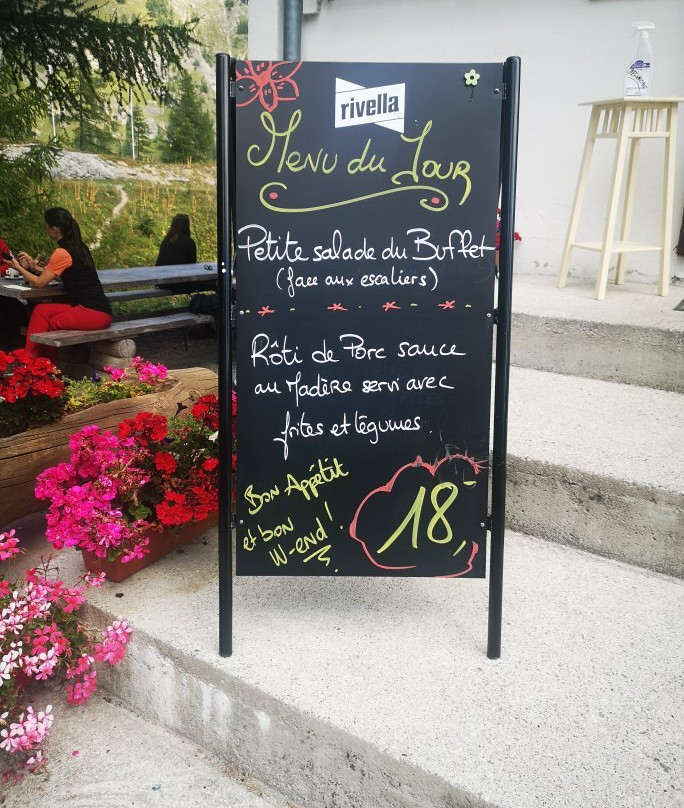 rivella
Menu du Jour
Petite salade du Buffet
(face aux escaliers)
Rôti de Porc sauce
au Madère servi avec
frites et légumes.
Bon Appétit
et bon
W-end!
18.-